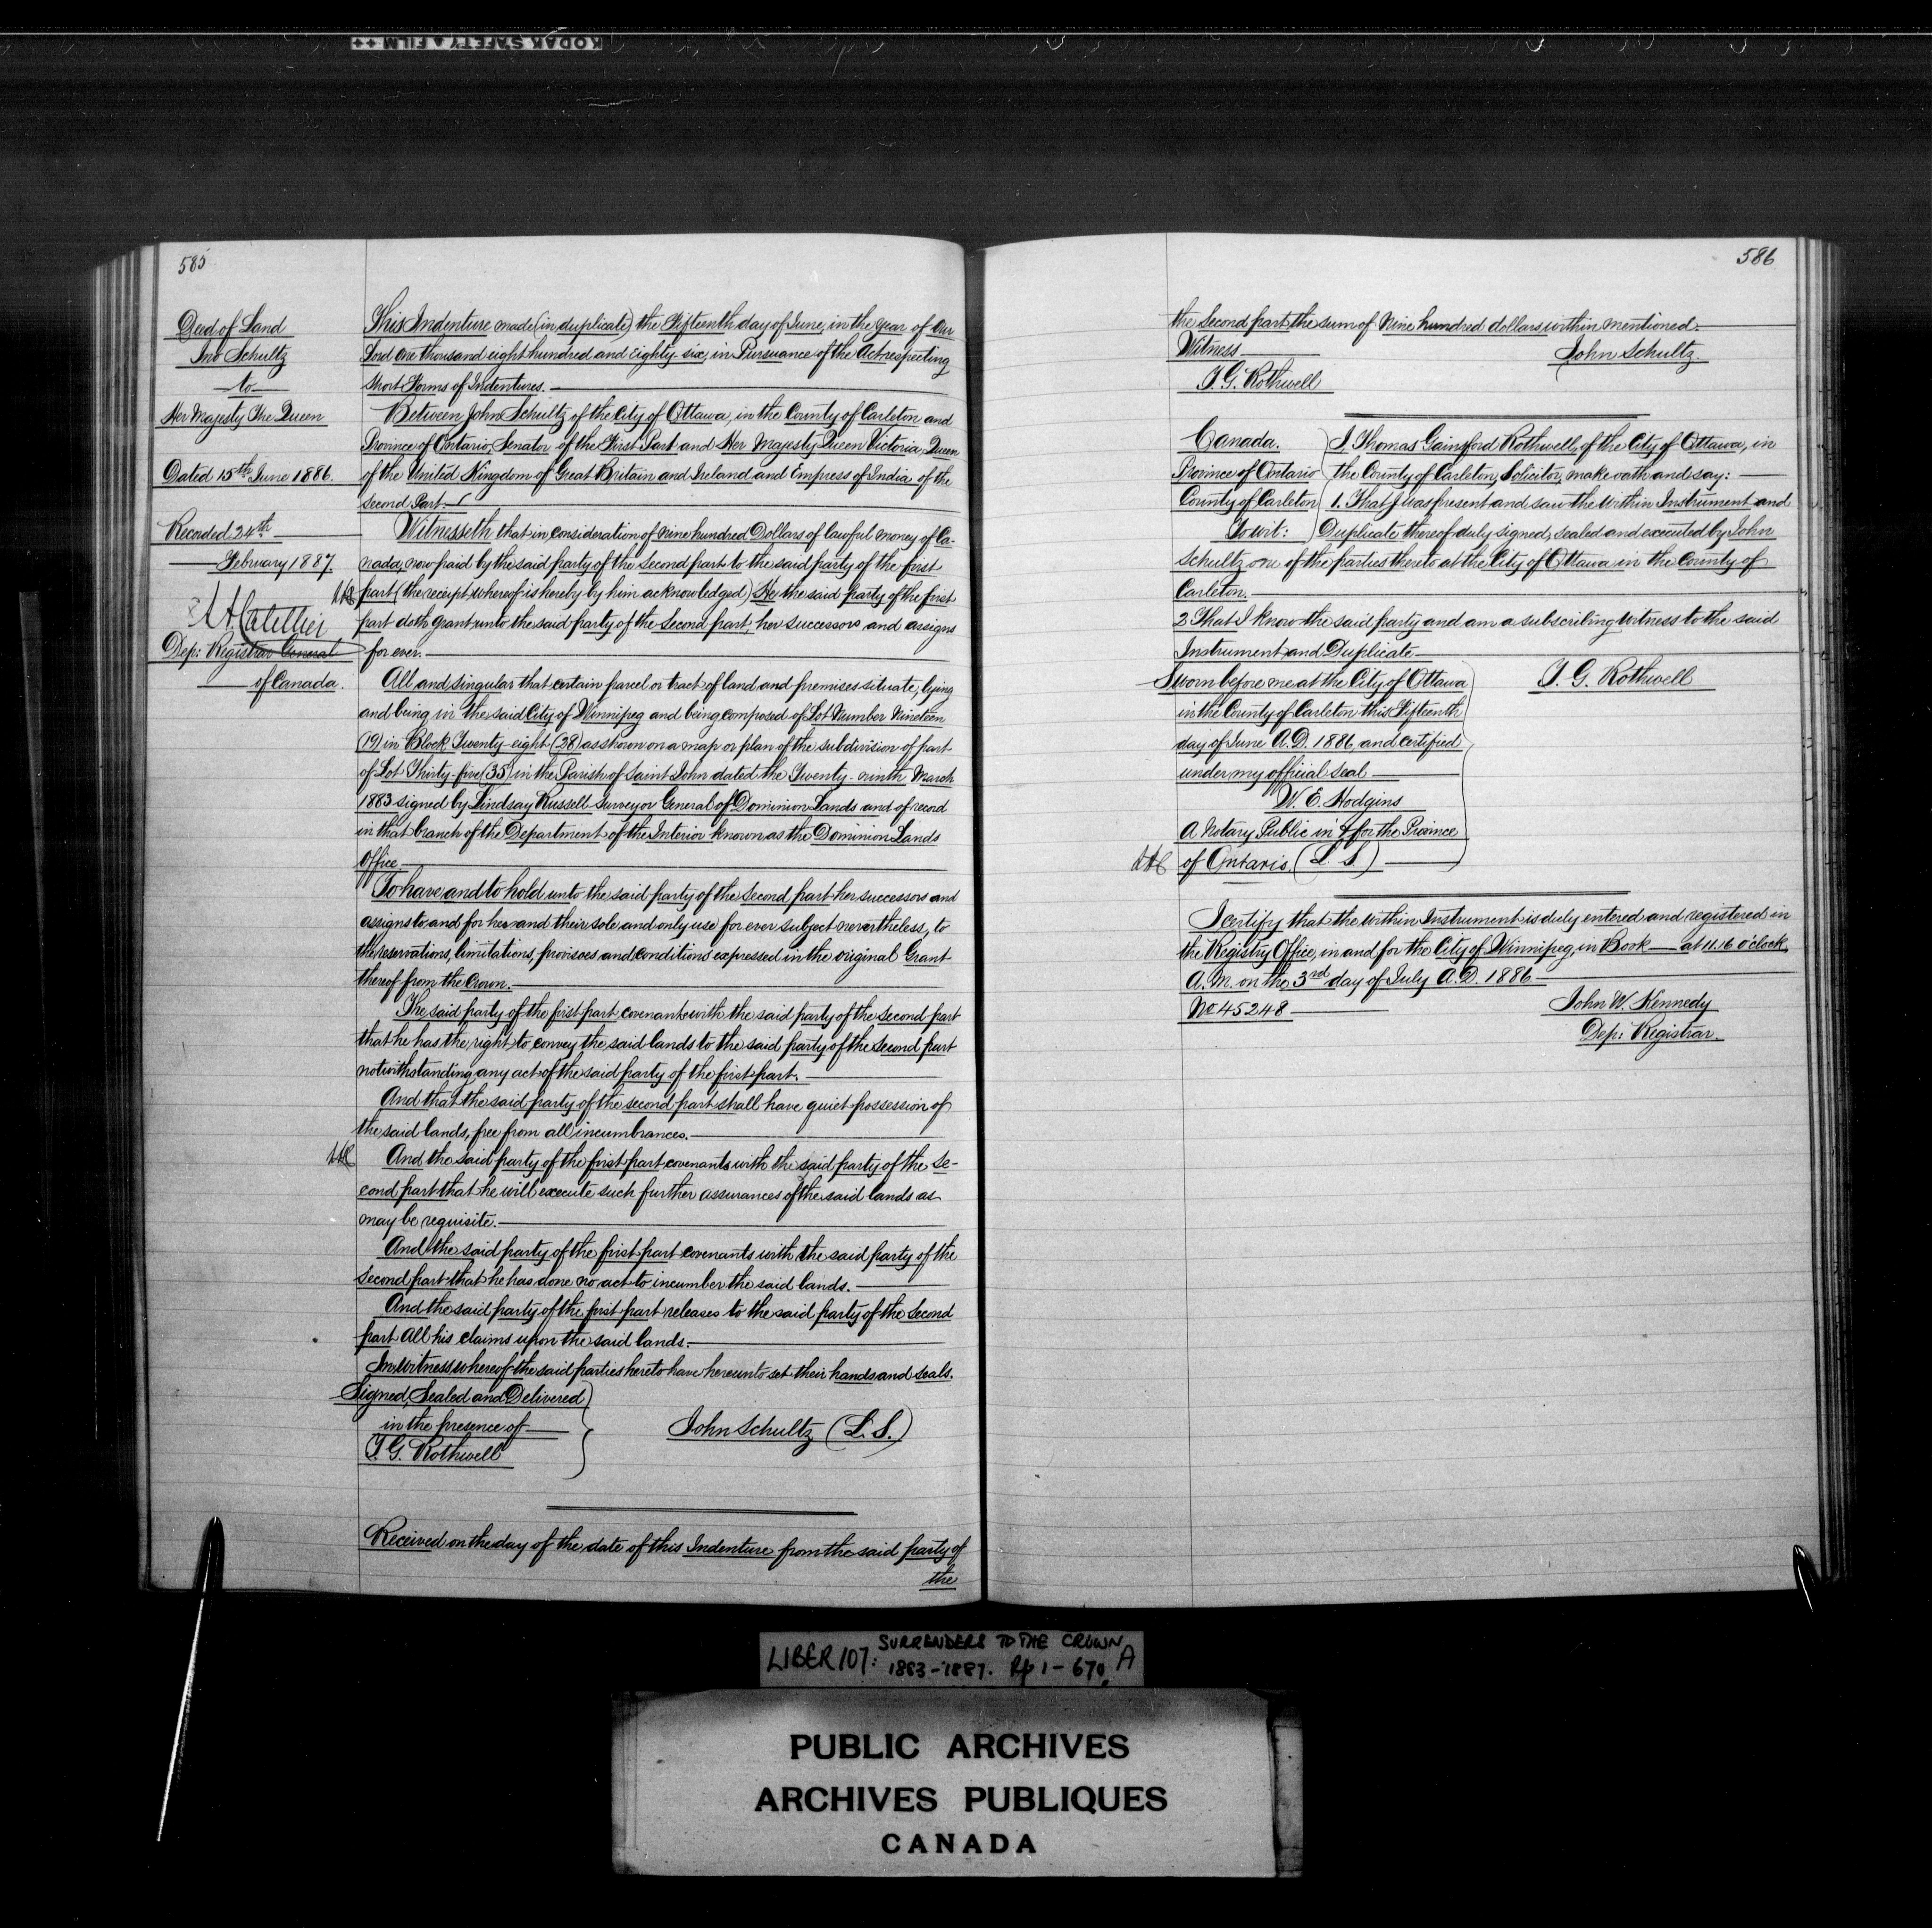 KODAK SAFETY FILM ++
585
Deed of Land
Jno Schultz
to
Her Majesty The Queen
Dated 15th June 1886.
Recorded 24th
February 1887.
Dep: Registrar General
of Canada.
This Indenture made (in duplicate) the Fifteenth day of June, in the year of Our
Lord one thousand eight hundred and eighty six, in Pursuance of the Act respecting
Short Forms of Indentures.
Between John Schultz of the City of Ottawa, in the County of Carleton and
Province of Ontario, Senator of the First Part and Her Majesty Queen Victoria, Queen
of the United Kingdom of Great Britain and Ireland and Empress of India of the
Second Part.
Witnesseth that in consideration of nine hundred Dollars of lawful money of Ca-
nada, now paid by the said party of the Second part to the said party of the first
part (the receipt whereof is hereby by him acknowledged) He the said party of the first
part doth grant unto the said party of the Second part, her successors and assigns
for ever.
All and singular that certain parcel or tract of land and premises situate, lying
and being in the said City of Winnipeg and being composed of Lot Number Nineteen
(19) in Block Twenty-eight (28) as shown on a map or plan of the subdivision of part
of Lot Thirty-five (35) in the Parish of Saint John dated the Twenty-ninth March
1883 signed by Lindsay Russell Surveyor General of Dominion Lands and of record
in that branch of the Department of the Interior known as the Dominion Lands
Office
To have and to hold unto the said party of the Second part her successors and
assigns to and for her and their sole and only use for ever subject nevertheless, to
the reservations, limitations, provisoes and conditions expressed in the original Grant
thereof from the Crown.
The said party of the first part covenants with the said party of the Second part
that he has the right to convey the said lands to the said party of the Second part
notwithstanding any act of the said party of the first part.
And that the said party of the second part shall have quiet possession of
the said lands, free from all incumbrances.
And the said party of the first part covenants with the said party of the Se-
cond part that he will execute such further assurances of the said lands as
may be requisite.
And the said party of the first part covenants with the said party of the
Second part that he has done no act to incumber the said lands.
And the said party of the first part releases to the said party of the Second
part All his claims upon the said lands.
In witness whereof the said parties hereto have hereunto set their hands and seals.
Signed, Sealed and Delivered
in the presence of
T. G. Rothwell
John Schultz (L. S.)
Received on the day of the date of this Indenture from the said party of
the
586
the Second part the sum of Nine hundred dollars within mentioned.
Witness
John Schultz.
T. G. Rothwell
Canada.
Province of Ontario
County of Carleton
To wit:
I, Thomas Gainsford Rothwell, of the City of Ottawa, in
the County of Carleton, Solicitor, make oath and say:
1. That I was present and saw the within Instrument and
Duplicate thereof duly signed, sealed and executed by John
Schultz one of the parties thereto at the City of Ottawa in the County of
Carleton.
2 That I know the said party and am a subscribing witness to the said
Instrument and Duplicate
Sworn before me at the City of Ottawa
in the County of Carleton this Fifteenth
day of June A.D. 1886 and certified
under my official seal
T. G. Rothwell
W. E. Hodgins
A Notary Public in & for the Province
of Ontario. (L. S)
I certify that the within Instrument is duly entered and registered in
the Registry Office, in and for the City of Winnipeg, in Book — at 11.16 o'clock
A. M. on the 3rd day of July A.D. 1886
No 45248
John W. Kennedy
Dep: Registrar.
LIBER 107: SURRENDERS TO THE CROWN A
1883-1887. Pp 1-670.
PUBLIC ARCHIVES
ARCHIVES PUBLIQUES
CANADA